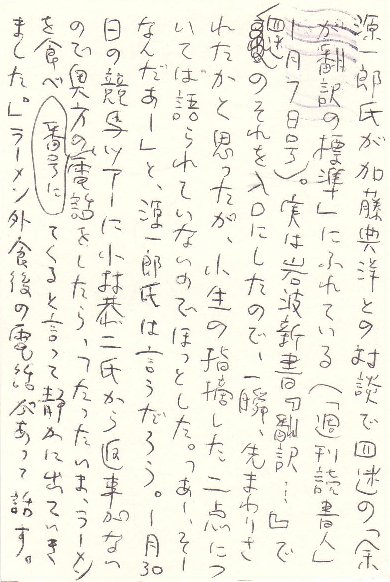 源一郎氏が加藤典洋との対談で四迷の「余
が翻訳の標準」にふれている（「週刊読書人」
1月7日号）。実は岩波新書の『翻訳…』で
四迷のそれを入口にしたので、一瞬、先まわりさ
れたかと思ったが、小生の指摘した二点につ
いては語られていないのでほっとした。「あー、そー
なんだあー」と、源一郎氏は言うだろう。1月30
日の競馬ツアーに小林恭二氏から返事がない
ので奥方の番号に電話をしたら、「たったいま、ラーメン
を食べてくると言って静かに出ていき
ました。」ラーメン外食後の電話があって話す。